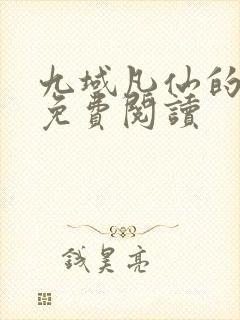 九域凡仙的
免費閱讀
錢昊亮